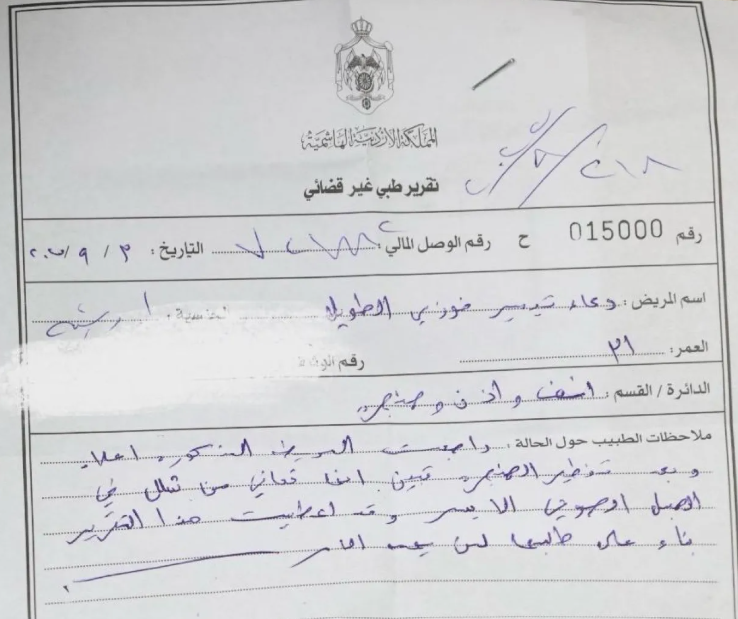 المملكة الأردنية الهاشمية
تقرير طبي غير قضائي
رقم 015000 ح رقم الوصل المالي: التاريخ: ٣ / ٩ /
اسم المريض: دعاء تيسير فوزي الطويل الجنسية: اردنية
العمر: ٣١
رقم
الدائرة / القسم: انف واذن وحنجره
ملاحظات الطبيب حول الحالة: راجعت المريضة المذكوره اعلاه
وبعد تنظير الحنجره تبين انها تعاني من شلل في
الحبل الصوتي الايسر وقد اعطيت هذا التقرير
بناء على طلبها لمن يهمه الامر